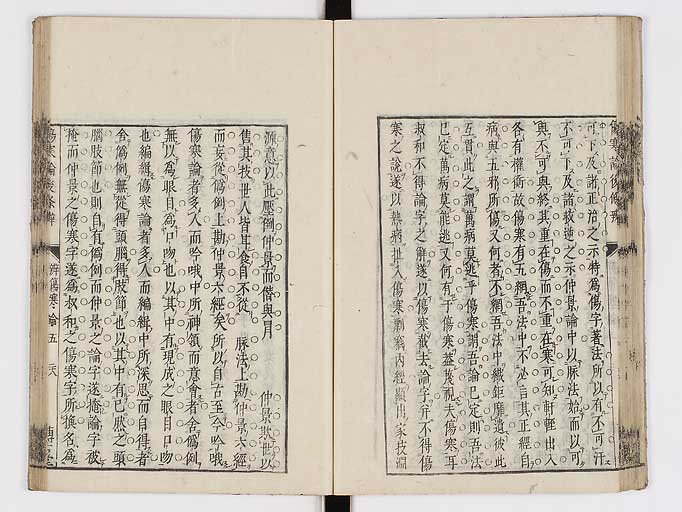 可下及諸正治之示特為傷字著法所以有不可汗
不可下及諸救逆之示仲景論中以脉法始而以可
與不可與終其重在傷而不重在寒可知軒輊出入
各有權衡故傷寒有五綱吾法中不必言其正經自
病與五邪所傷又何者不綱吾法中織鉅靡遺彼此
互貫此之謂萬病莫逃乎傷寒謂吾論已定則吾法
已定萬病莫能逃又何有于傷寒益蔑視夫傷寒耳
叔和不得論字之解遂以傷寒截去論字并不得傷
寒之說遂以熱病世入傷寒剽竊內經顯出家技淵
源意以此壓倒仲景而偕與月 仲景欺世以
售其技世人皆耳食自不從 脉法上勘仲景六經
而妄從為例上勘仲景六經矣所以自古至今吟哦
傷寒論者多人而吟哦中所神領而意會者舍為例
無以為眼目為口吻也以其中有現成之眼目口吻
也編緝傷寒論者多人而編緝中所深思而自得者
舍為例無從得頭腦得肢節也以其中有已成之頭
腦肢節也則自有為例而仲景之論字遂掩論字被
掩而仲景之傷寒字遂為叔和之傷寒字所狼名為
傷寒論後條辨
辨傷寒論五